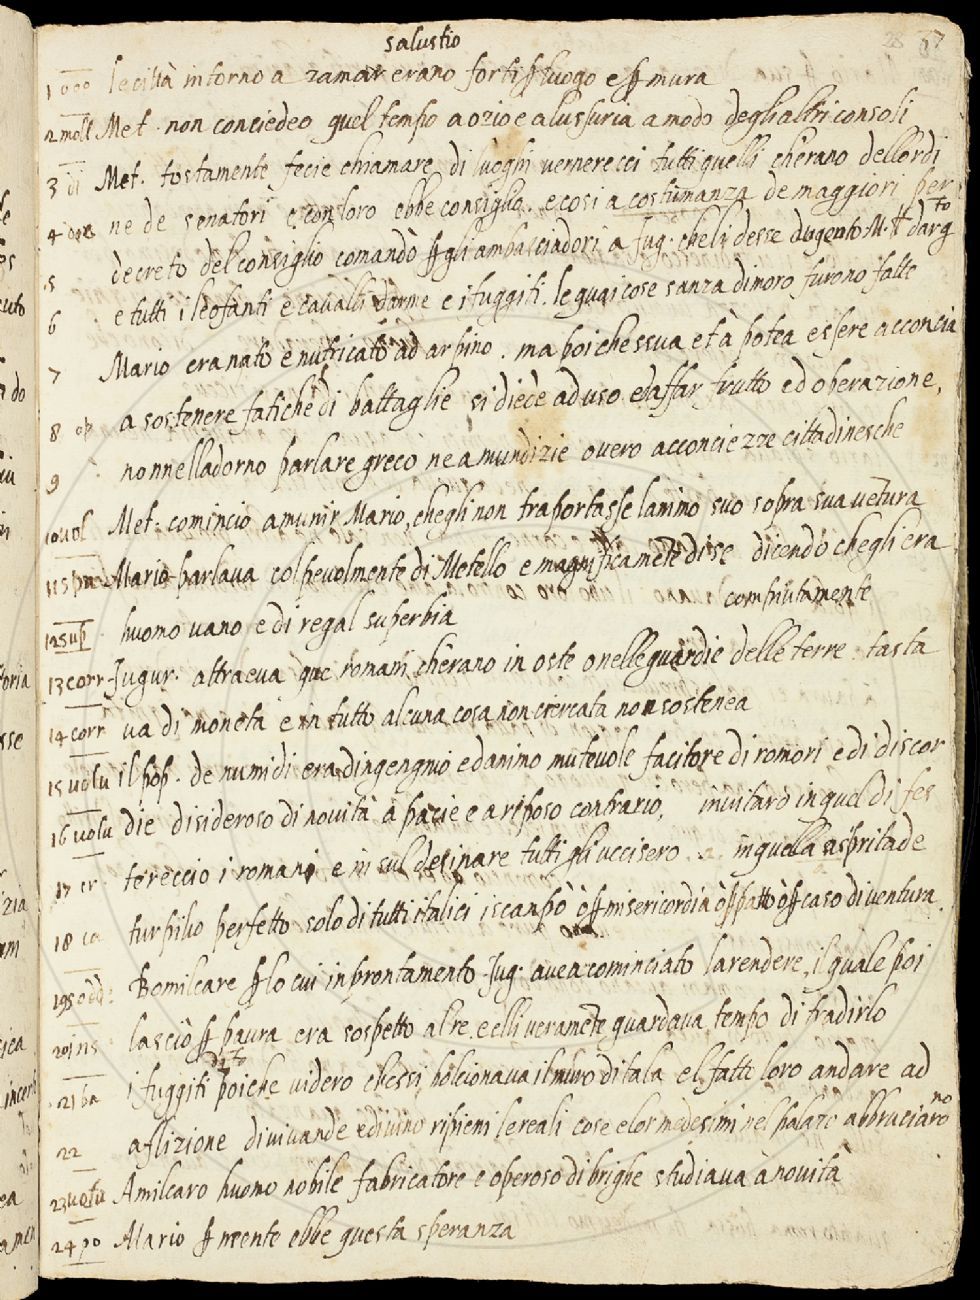 salustio
28 37
1 ooo le città intorno a zamar erano forti p luogo e p mura
2 molt Met. non conciedeo quel tempo a ozio e a lussuria a modo degli altri consoli
3 di Met. tostamente fecie chiamare di luoghi verneresci tutti quelli cherano dellordi
4 ne de senatori e con loro ebbe consiglio. e cosi a costumanza de maggiori per
5 decreto del consiglio comandò p gli ambasciadori a Jug. che li desse dugento M. darg to
6 e tutti i leofanti e cavalli darme e i fuggiti. le quai cose sanza dimoro furono fatte
7 Mario era nato e nutricato ad arpino. ma poi chessua età potea essere acconcia
8 op a sostenere fatiche di battaglie si diede ad uso edaffar frutto ed operazione,
9 nonnelladorno parlare greco ne a mundizie overo acconciezze cittadinesche
10 vol Met. comincio a munir Mario, chegli non trasportasse lanimo suo sopra sua vetura
11 Mario parlava colpevolmente di Metello e magnificamete di se dicendo chegli era
compiutamente
12 sup huomo vano e di regal superbia
13 corr Jugur. attraeva que romani cherano in oste o nelle guardie delle terre. tasta
14 corr va di moneta e in tutto alcuna cosa non ciercata non sostenea
15 volu il pop. de numidi era dingengnio e danimo mutevole facitore di romori e di discor
16 volu die disideroso di novità à pacie e a riposo contrario, invitaro in quel di fes
17 cr tereccio i romani e in sul desinare tutti gli uccisero. in quella aspritade
18 ca turpilio perfetto solo di tutti italici iscanpò ò p misericordia ò p patto ò p caso di ventura
19 sodd: Bomilcare p lo cui inprontamento Jug. avea cominciato larendere, il quale poi
20 ins lasciò p paura era sospetto al re. e elli veramete guardava tempo di tradirlo
21 ba i fuggiti poiche videro chessi bolcionava il muro di tala el fatto loro andare ad
22 aflizione di vivande e di vino ripieni le reali cose e lor medesimi nel palazo abbruciaro no
23 volu Amilcaro huomo nobile fabricatore e operoso di brighe studiava à novità
24 po Mario p niente ebbe questa speranza